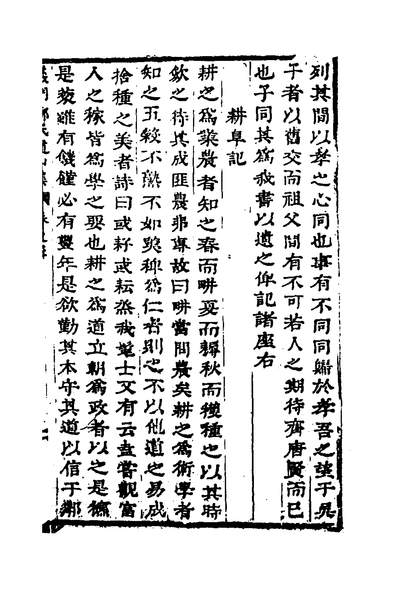 列其間以孝之心同也事有不同同歸於孝吾之談于吳
子者以舊交而祖父間有不可若人之期待齊唐賢而已
也子同其爲我書以遺之俾記諸座右
耕阜記
耕之爲業農者知之春而耕夏而耨秋而穫種之以其時
欽之待其成匪農弗專故曰耕當問農矣耕之爲術學者
知之五穀不熟不如荑稗爲仁者則之不以他道之易成
捨種之美者詩曰或耔或耘烝我髦士又有云盍嘗觀富
人之稼皆爲學之要也耕之爲道立朝爲政者以之是穮
是蔉雖有饑饉必有豐年是欲勤其本守其道以信于鄰